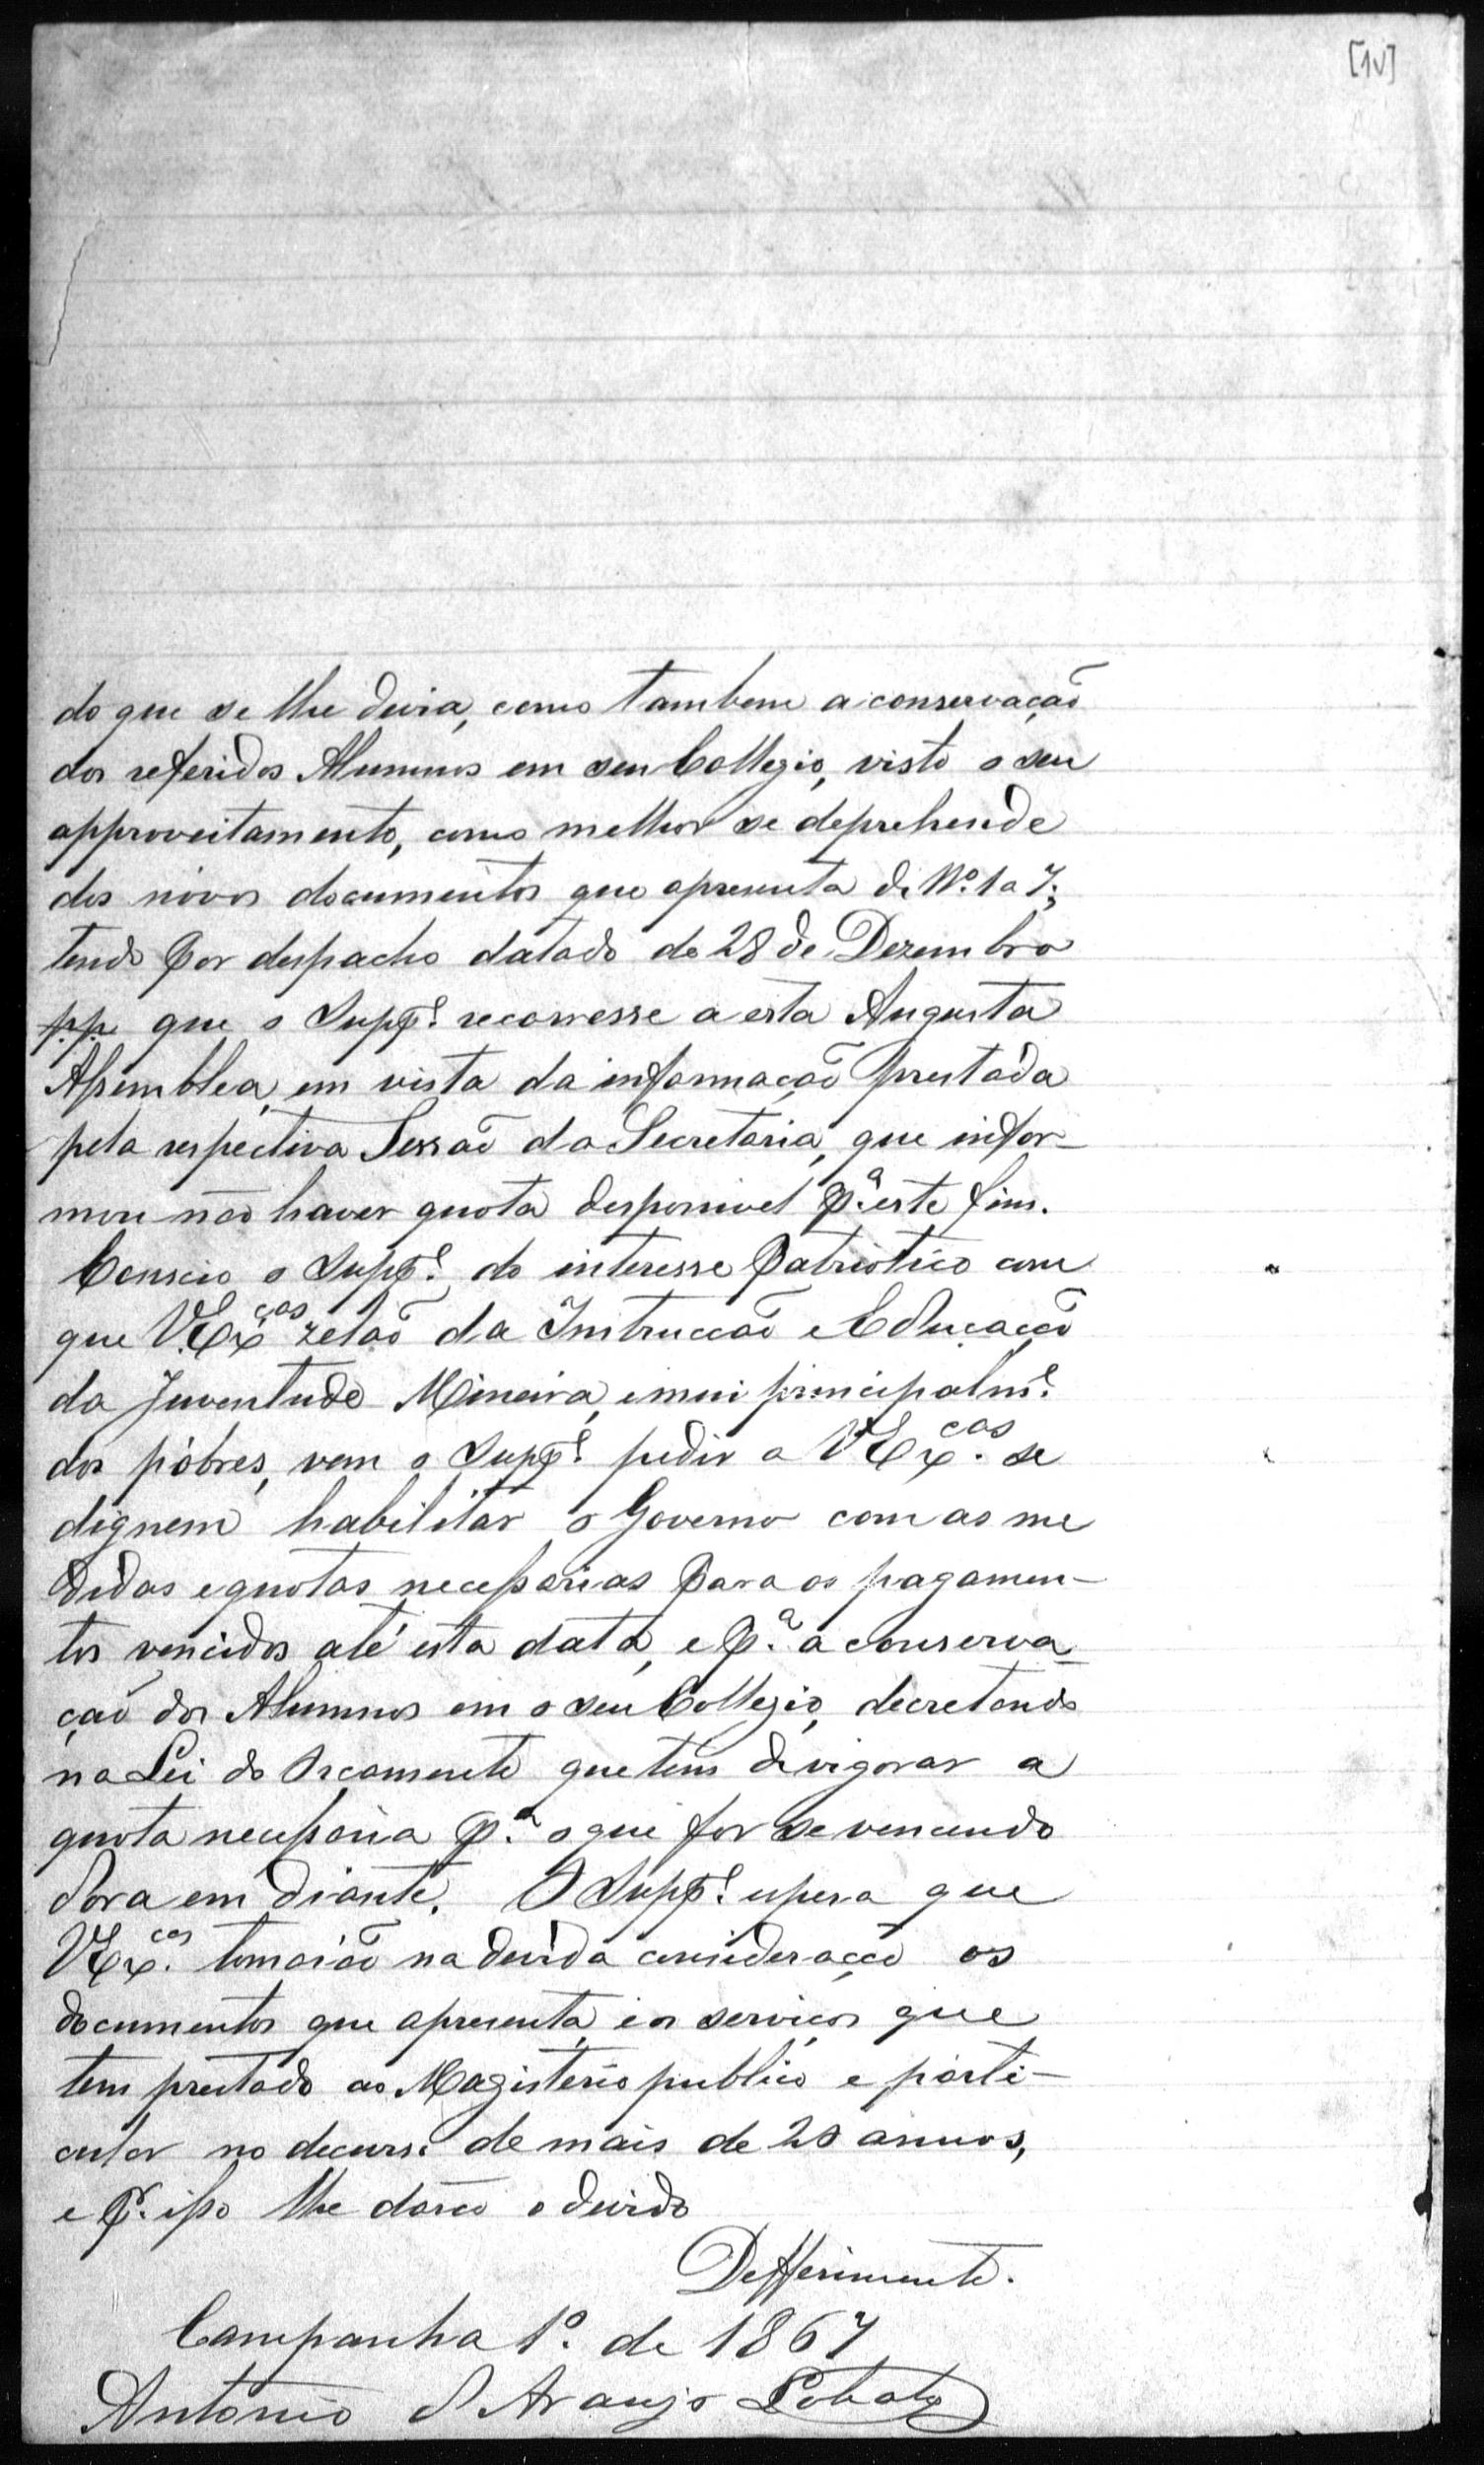 [1v]
do que se lhe devia, como tambem a conservação
dos referidos Alumnos em seu Collegio, visto o seu
approveitamento, como melhor se deprehende
dos novos documentos que apresenta de Nº. 1 a 7;
tendo por despacho datado de 28 de Dezembro
p.p. que o Suppe. recorresse a esta Augusta
Assemblea, em vista da informação prestada
pela respectiva Sessão da Secretaria, que infor-
mou não haver quota desponivel pa. este fim.
Conscio o Suppe. do interesse patriotico com
que V.Excas zelão da Instrucção e Educação
da Juventude Mineira, e mui principalme.
dos póbres, vem o Suppe. pedir a VExcas. se
dignem habilitar o Governo com as me
didas e quotas necessarias para os pagamen-
tos vencidos até esta data, e pa. a conserva
ção dos Alumnos em o seu Collegio, decretando
na Lei do Orçamento que tem de vigorar a
quota necessaria pa. o que for se vencendo
d'ora em diante. O Suppe. espera que
VExcas. tomarão na devida consideração os
documentos que apresenta, e os serviços que
tem prestado ao Magisterio publico e parti-
cular no decurso de mais de 20 annos,
e pr. isso lhe darão o devido
Defferimento.
Campanha 1º. de 1867
Antonio d'Araujo Lobato